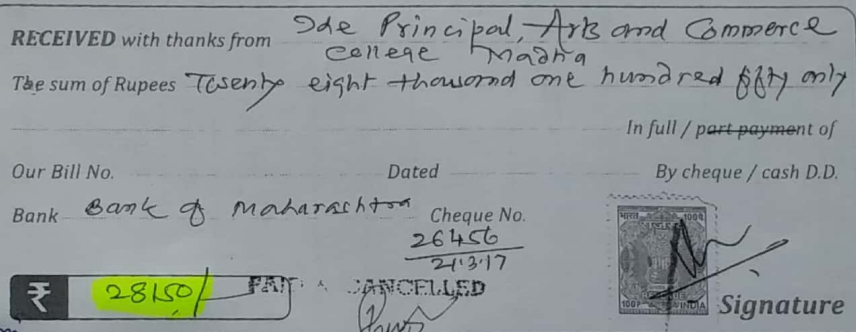 RECEIVED with thanks from The Principal, Arts and Commerce
College Madha
The sum of Rupees Twenty eight thousand one hundred fifty only
In full / part payment of
Our Bill No. Dated By cheque / cash D.D.
Bank Bank of Maharashtra Cheque No.
26456
21.3.17
₹ 28150/- PAID & CANCELLED
भारत 100प
100P INDIA
Signature